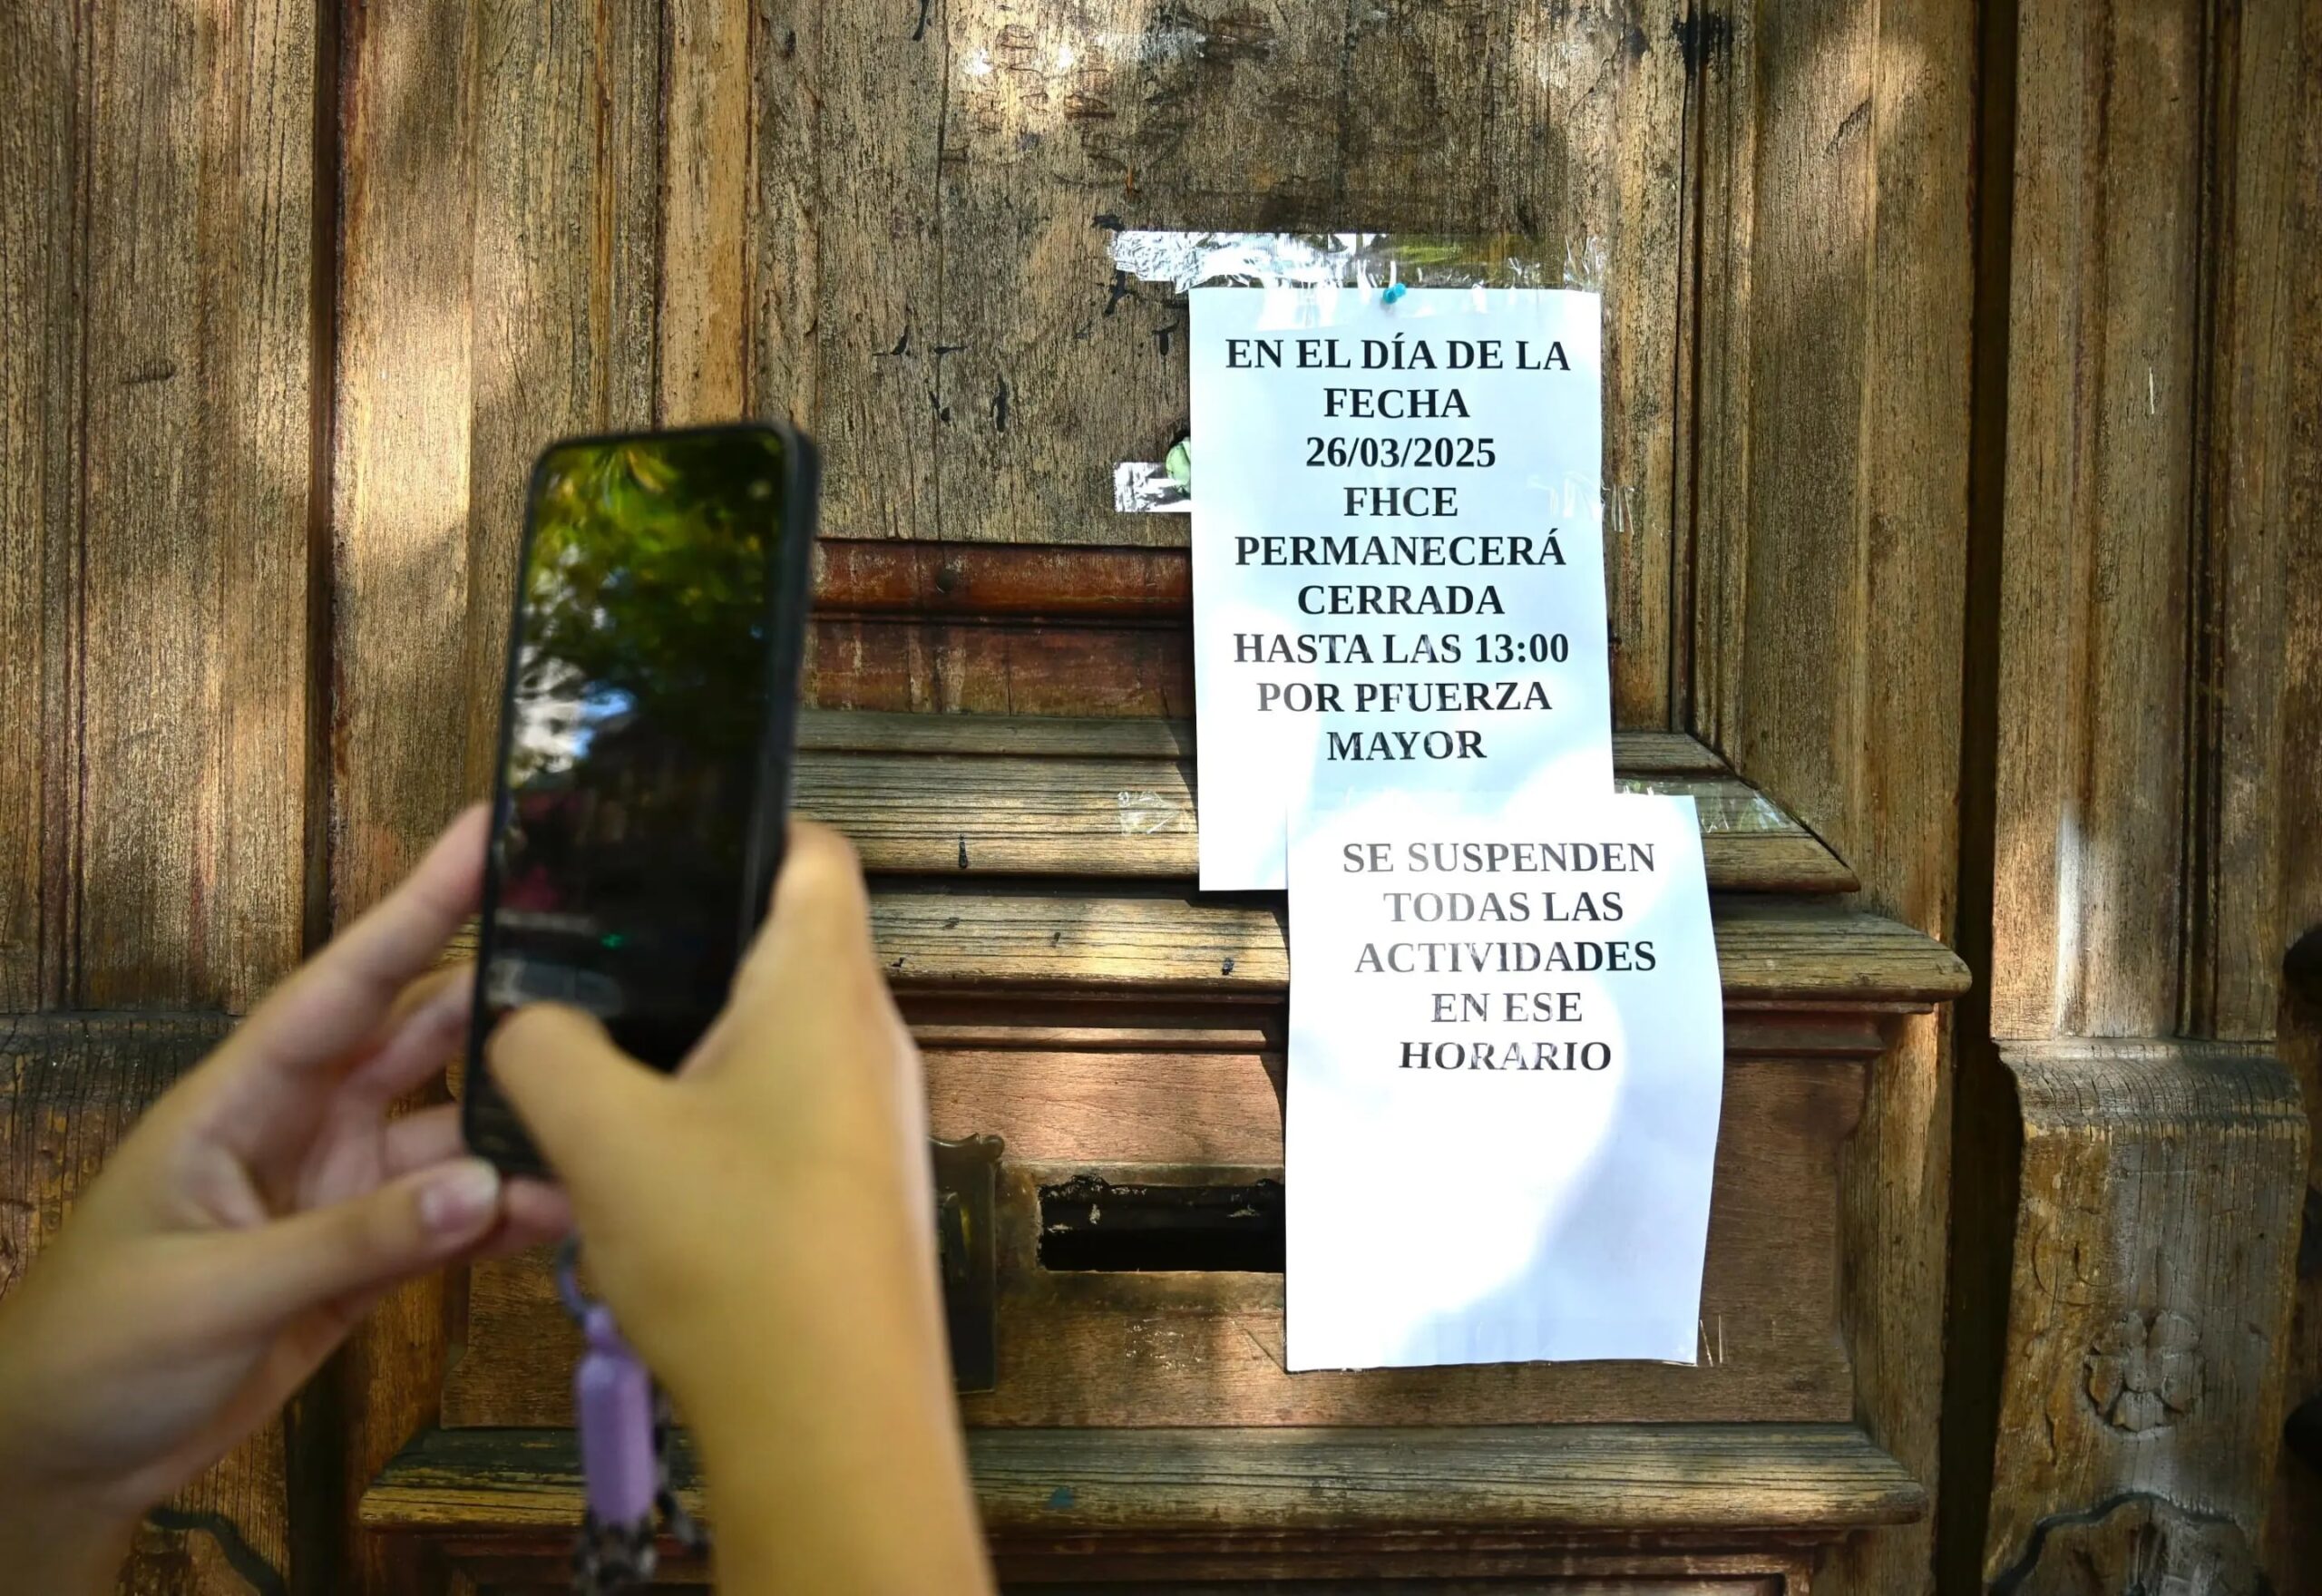 EN EL DÍA DE LA
FECHA
26/03/2025
FHCE
PERMANECERÁ
CERRADA
HASTA LAS 13:00
POR PFUERZA
MAYOR
SE SUSPENDEN
TODAS LAS
ACTIVIDADES
EN ESE
HORARIO